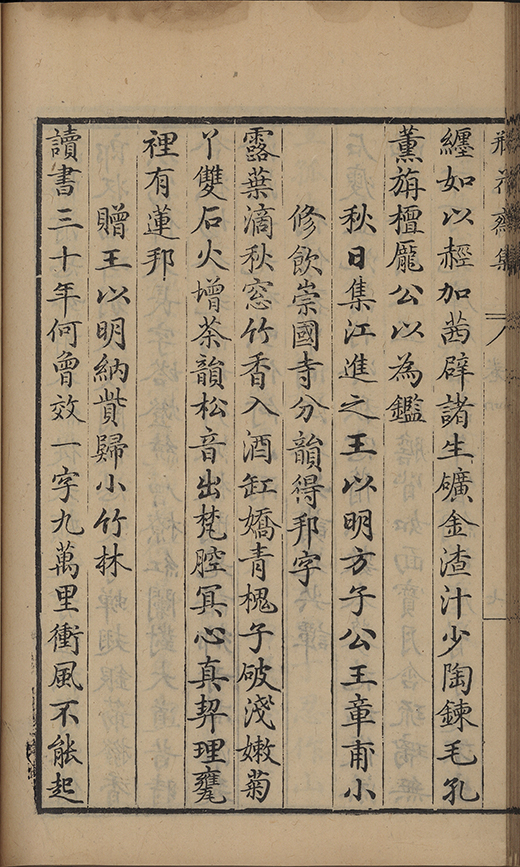 瓶花齋集
纏如以輕加茜辟諸生礦金渣汁少陶鍊毛孔
薰旃檀龐公以為鑑
秋日集江進之王以明方子公王章甫小
修飲崇國寺分韻得邦字
露葉滴秋窓竹香入酒缸嬌青槐子破淺嫩菊
丫雙石火增茶韻松音出梵腔冥心真契理甕
裡有蓮邦
贈王以明納貲歸小竹林
讀書三十年何曾效一字九萬里衝風不能起